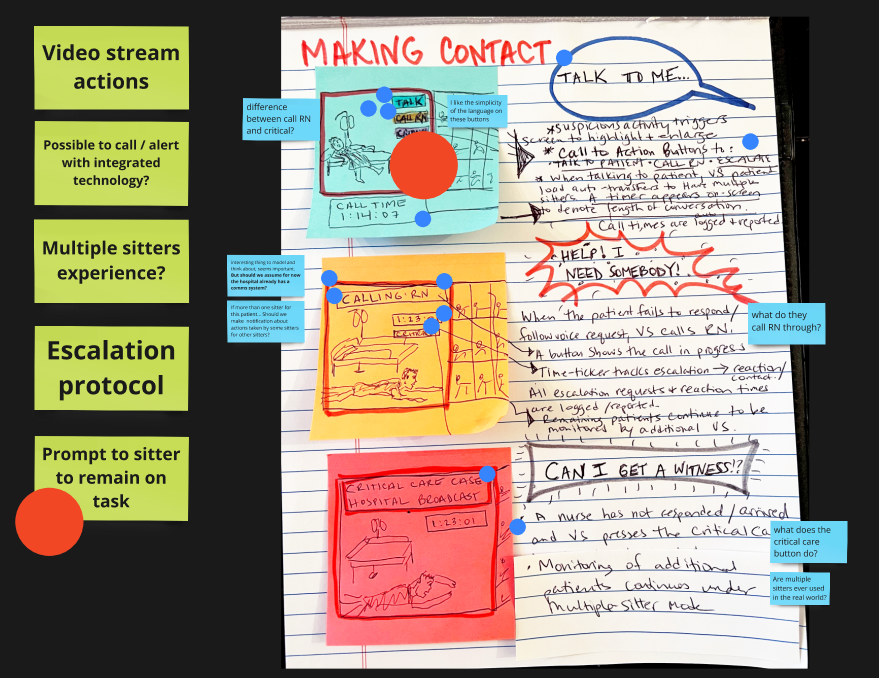 Video stream
actions
Possible to call / alert
with integrated
technology?
Multiple sitters
experience?
Escalation
protocol
Prompt to sitter
to remain on
task
MAKING CONTACT
difference
between call RN
and critical?
TALK
CALL RN
I like the simplicity
of the language on
these buttons
CALL TIME
1:14:07
TALK TO ME...
* Suspicious activity triggers
screen to highlight + enlarge
* Call to Action Buttons to:
- TALK TO PATIENT · CALL RN · ESCALATE
* When talking to patient, VS patient
load auto-transfers to Have multiple
sitters. A timer appears on-screen
to denote length of conversation.
Call times are logged + reported
HELP! I
NEED SOMEBODY!
Interesting thing to model and
think about, seems important.
But should we assume for now
the hospital already has a
comms system?
If more than one sitter for
this patient... Should we
make notification about
actions taken by some sitters
for other sitters?
CALLING RN
1:23:
CRITICAL
When the patient fails to respond/
follow voice request, VS calls RN.
A button shows the call in progress
Time-ticker tracks escalation → reaction/
contact.
All escalation requests + reaction times
are logged/reported.
Remaining patients continue to be
monitored by additional VS.
what do they
call RN through?
CAN I GET A WITNESS!?
CRITICAL CARE CASE
HOSPITAL BROADCAST
1:23:01
· A nurse has not responded/arrived
and VS presses the Critical Ca
· Monitoring of additional
patients continues under
multiple-sitter mode
what does the
critical care
button do?
Are multiple
sitters ever used
in the real world?